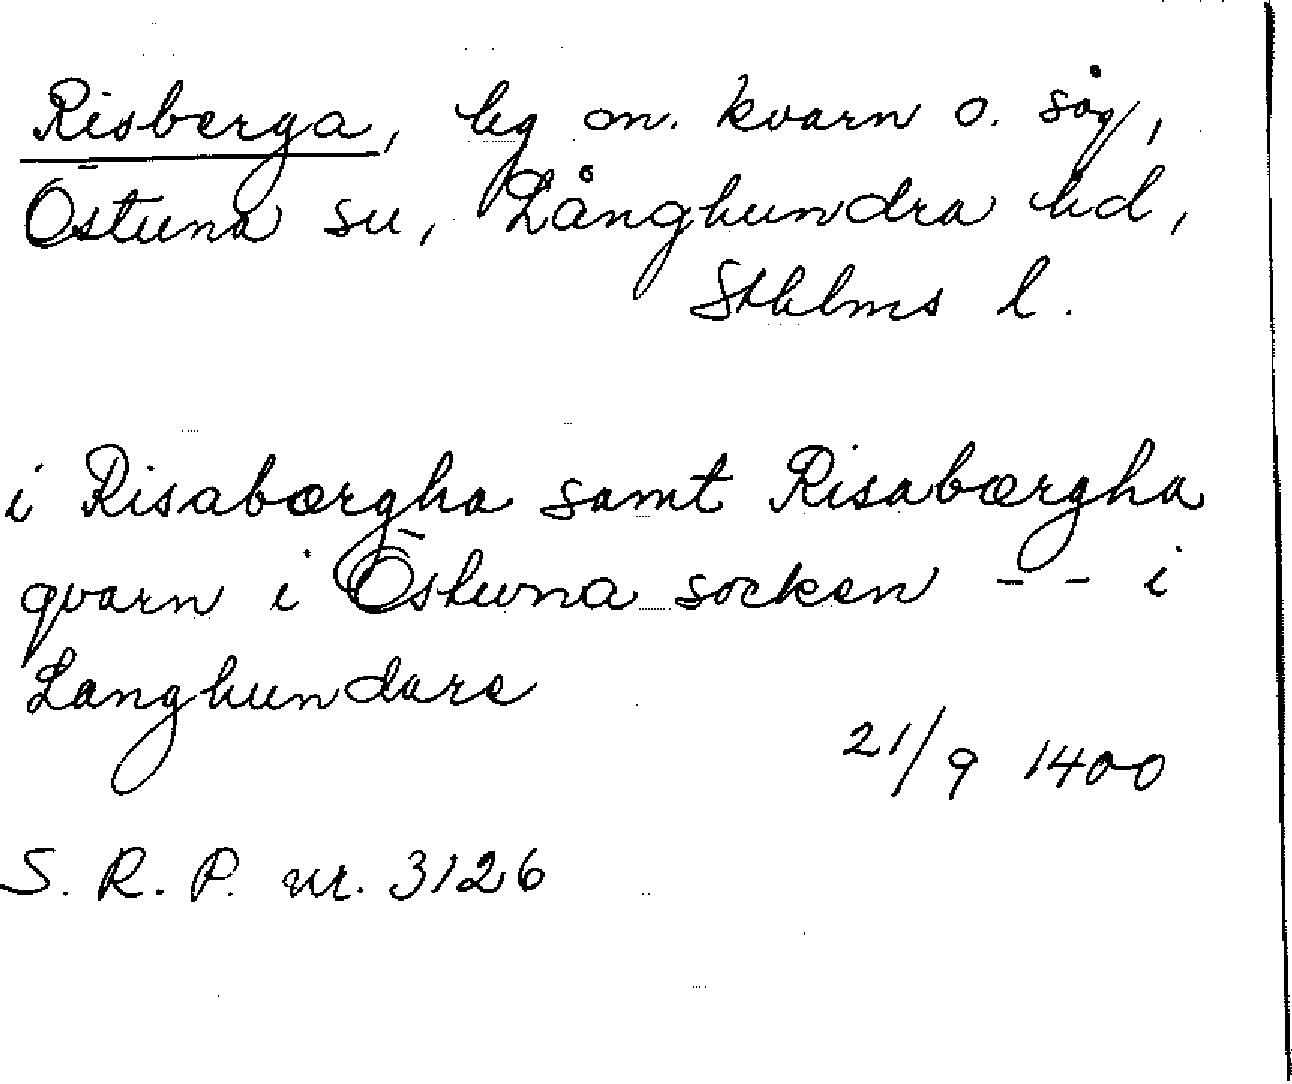 Risberga, bg m. kvarn o. såg,
Östuna sn, Långhundra hd,
Sthlms l.
i Risabærgha samt Risabærgha
qvarn i Östuna socken -- i
Langhundare
21/9 1400
S. R. P. nr. 3126